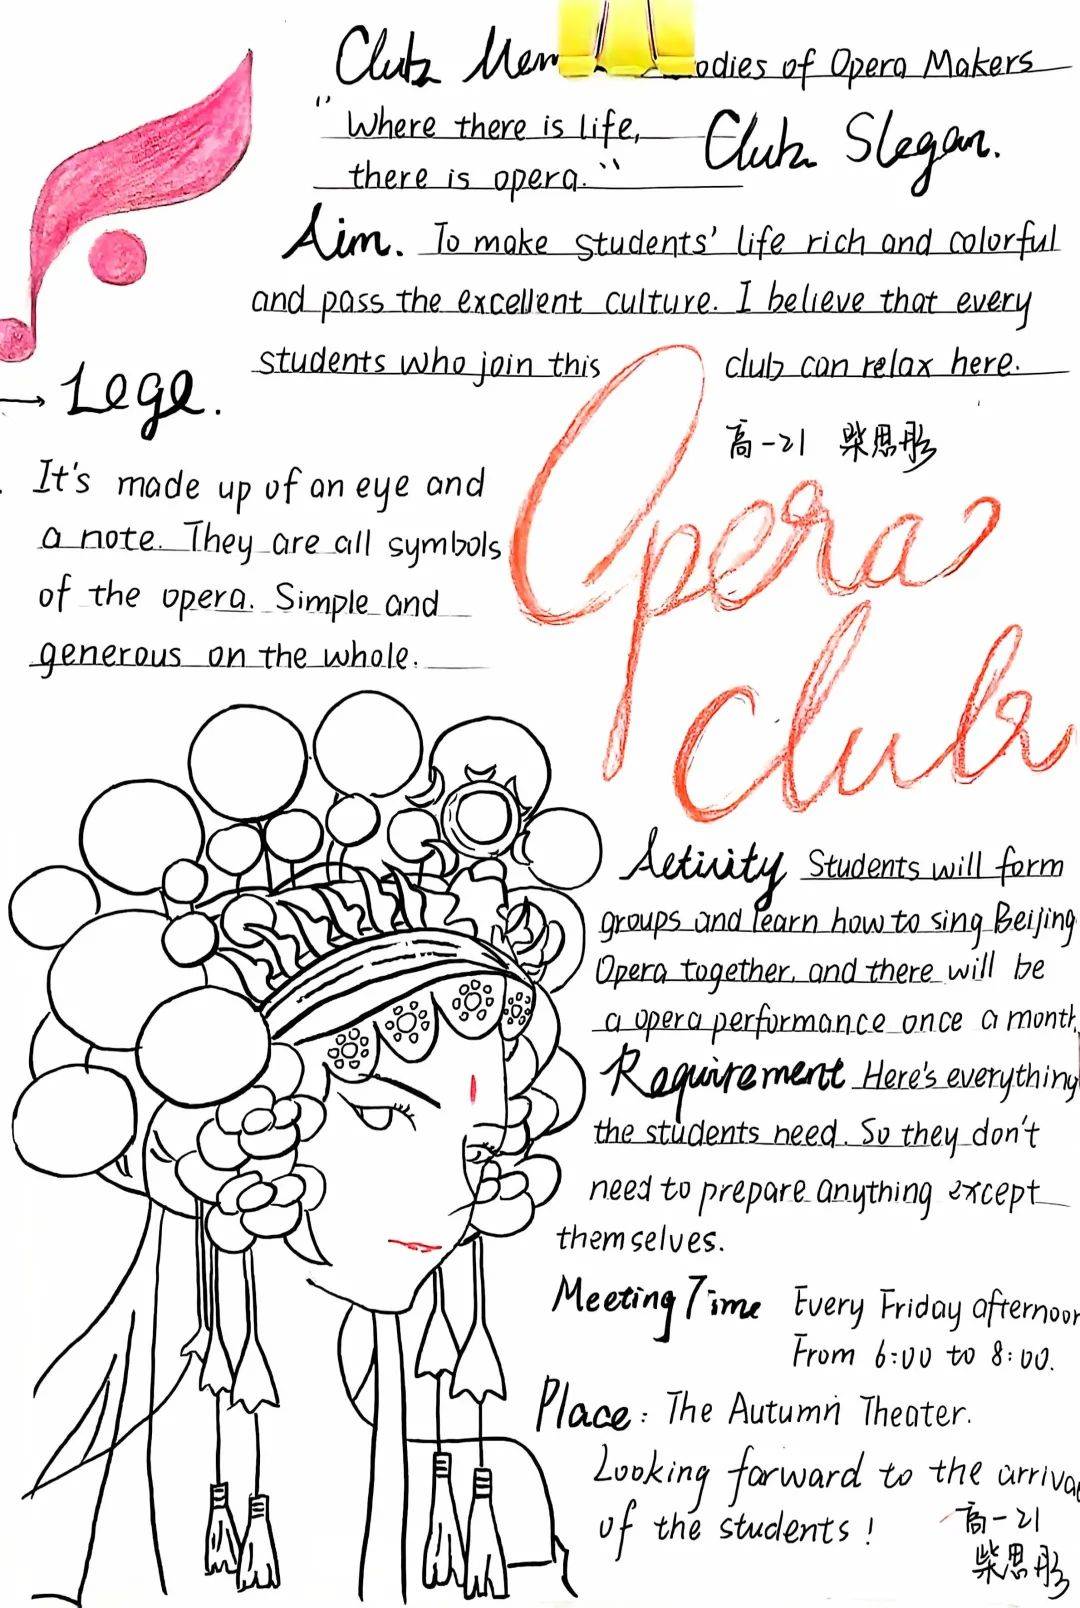 Club odies of Opera Makers
"Where there is life, Club Slegan.
there is opera."
Aim. To make students' life rich and colorful
and pass the excellent culture. I believe that every
students who join this club can relax here.
→ Loge.
高一21 柴思彤
It's made up of an eye and
a note. They are all symbols
of the opera. Simple and
generous on the whole.
Opera
Club
Activity Students will form
groups and learn how to sing Beijing
Opera together, and there will be
a opera performance once a month.
Requirement Here's everything
the students need. So they don't
need to prepare anything except
themselves.
Meeting Time Every Friday afternoon
From 6:00 to 8:00.
Place: The Autumn Theater.
Looking forward to the arrival
of the students!
高一21
柴思彤